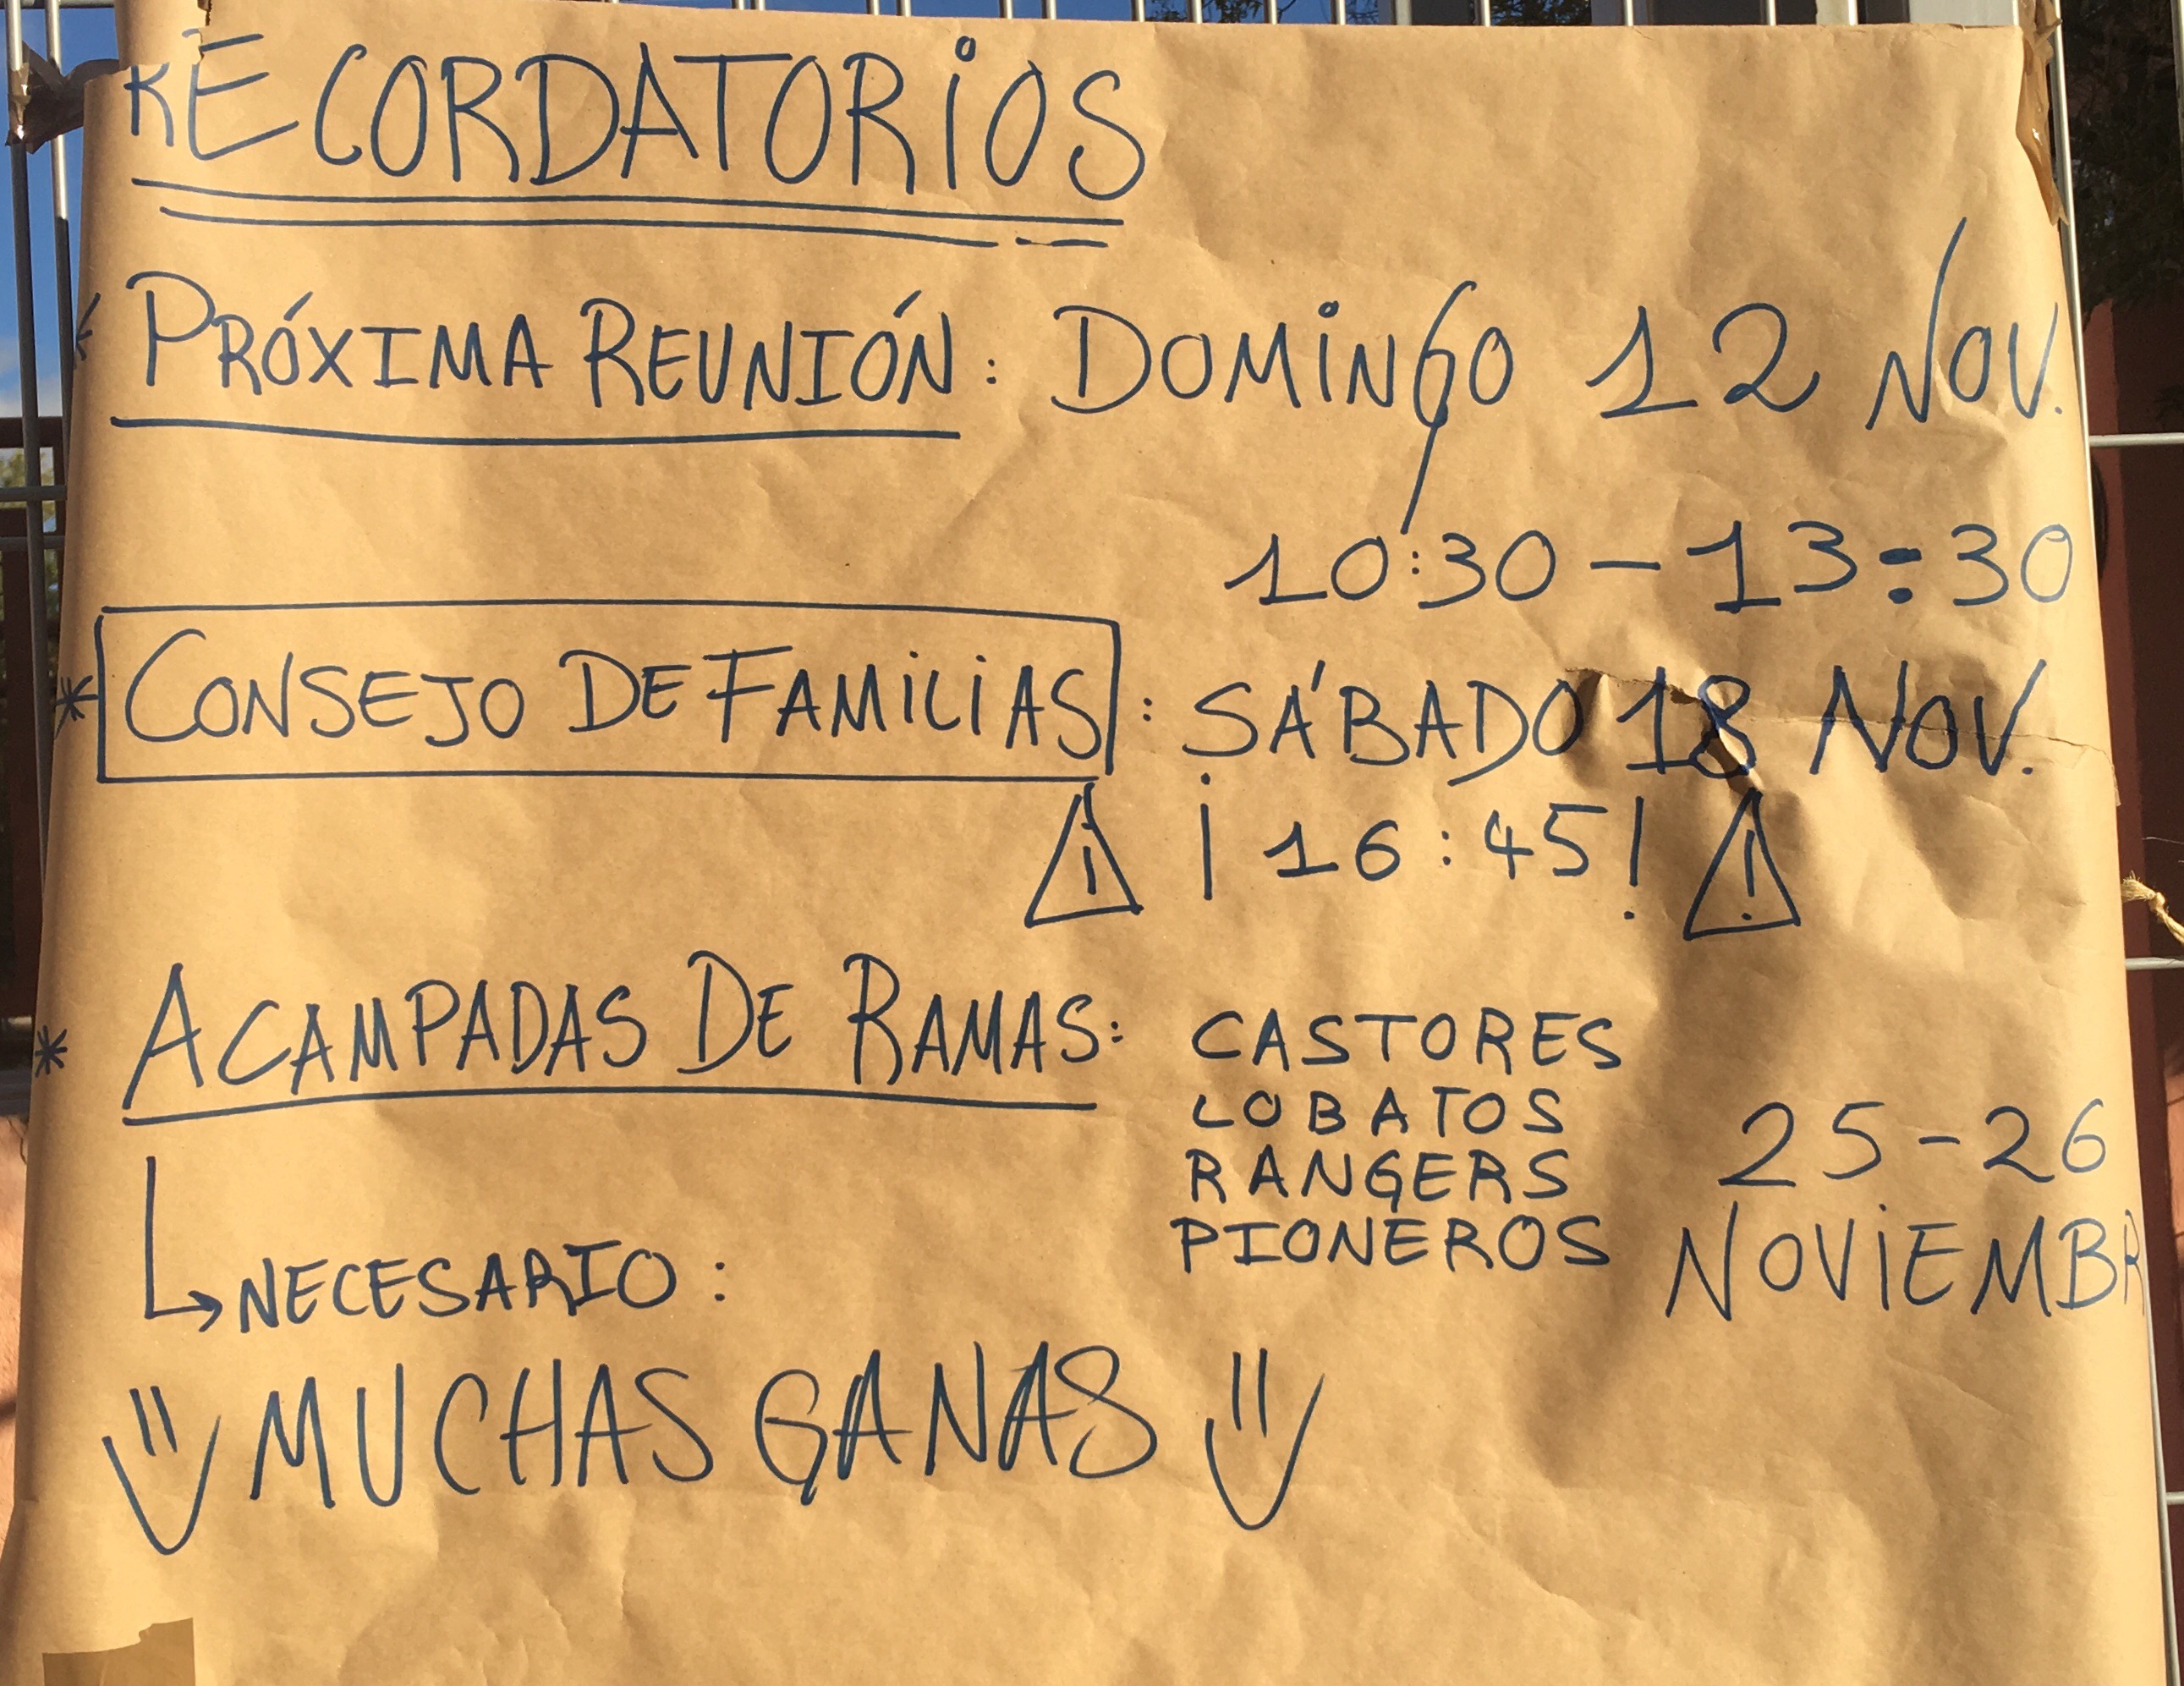 RECORDATORIOS
* PRÓXIMA REUNIÓN: DOMINGO 12 NOV.
10:30 - 13:30
* CONSEJO DE FAMILIAS: SÁBADO 18 NOV.
¡16:45!
* ACAMPADAS DE RAMAS: CASTORES
LOBATOS
RANGERS
PIONEROS
25-26
NOVIEMBR
NECESARIO:
MUCHAS GANAS